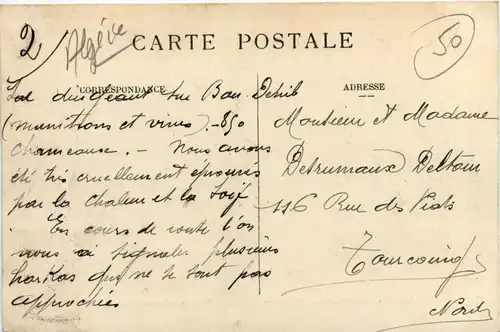 2
Algérie
50
CARTE POSTALE
CORRESPONDANCE
ADRESSE
se dirigeant sur Bou. Denib
(munitions et vivres). 850
chameaux. - Nous avons
été très cruellement éprouvés
par la chaleur et la soif
. En cours de route l'on
nous a signaler plusieurs
harkas qui ne se sont pas
approchées
Monsieur et Madame
Detrumaux Deltour
116 Rue des Piats
Tourcoing
Nord